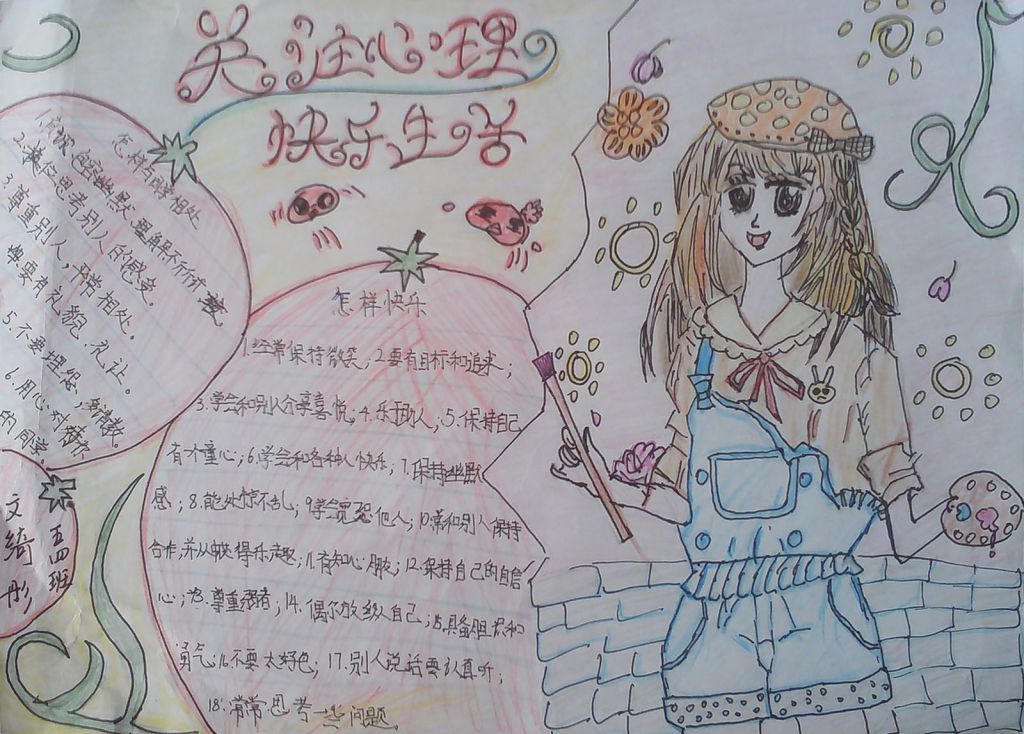 关注心理
快乐生活
怎样与同学相处
2.换位思考别人的感受。
3.尊重别人,平常相处
要有礼貌、礼让。
5.不要埋怨,
6.用心对待你
的同学
五四班
文绮彤
怎样快乐
1.经常保持微笑;2.要有目标和追求;
3.学会和别人分享喜悦;4.乐于助人;5.保持自己
有个童心;6.学会和各种人快乐;7.保持幽默
感;8.能处惊不乱;9.学会宽恕他人;10.常和别人保持
合作,并从中获得乐趣;11.有知心朋友;12.保持自己的自信
心;13.尊重弱者;14.偶尔放纵自己;15.具备胆识和
勇气;16.不要太好色;17.别人说话要认真听;
18.常常思考一些问题。